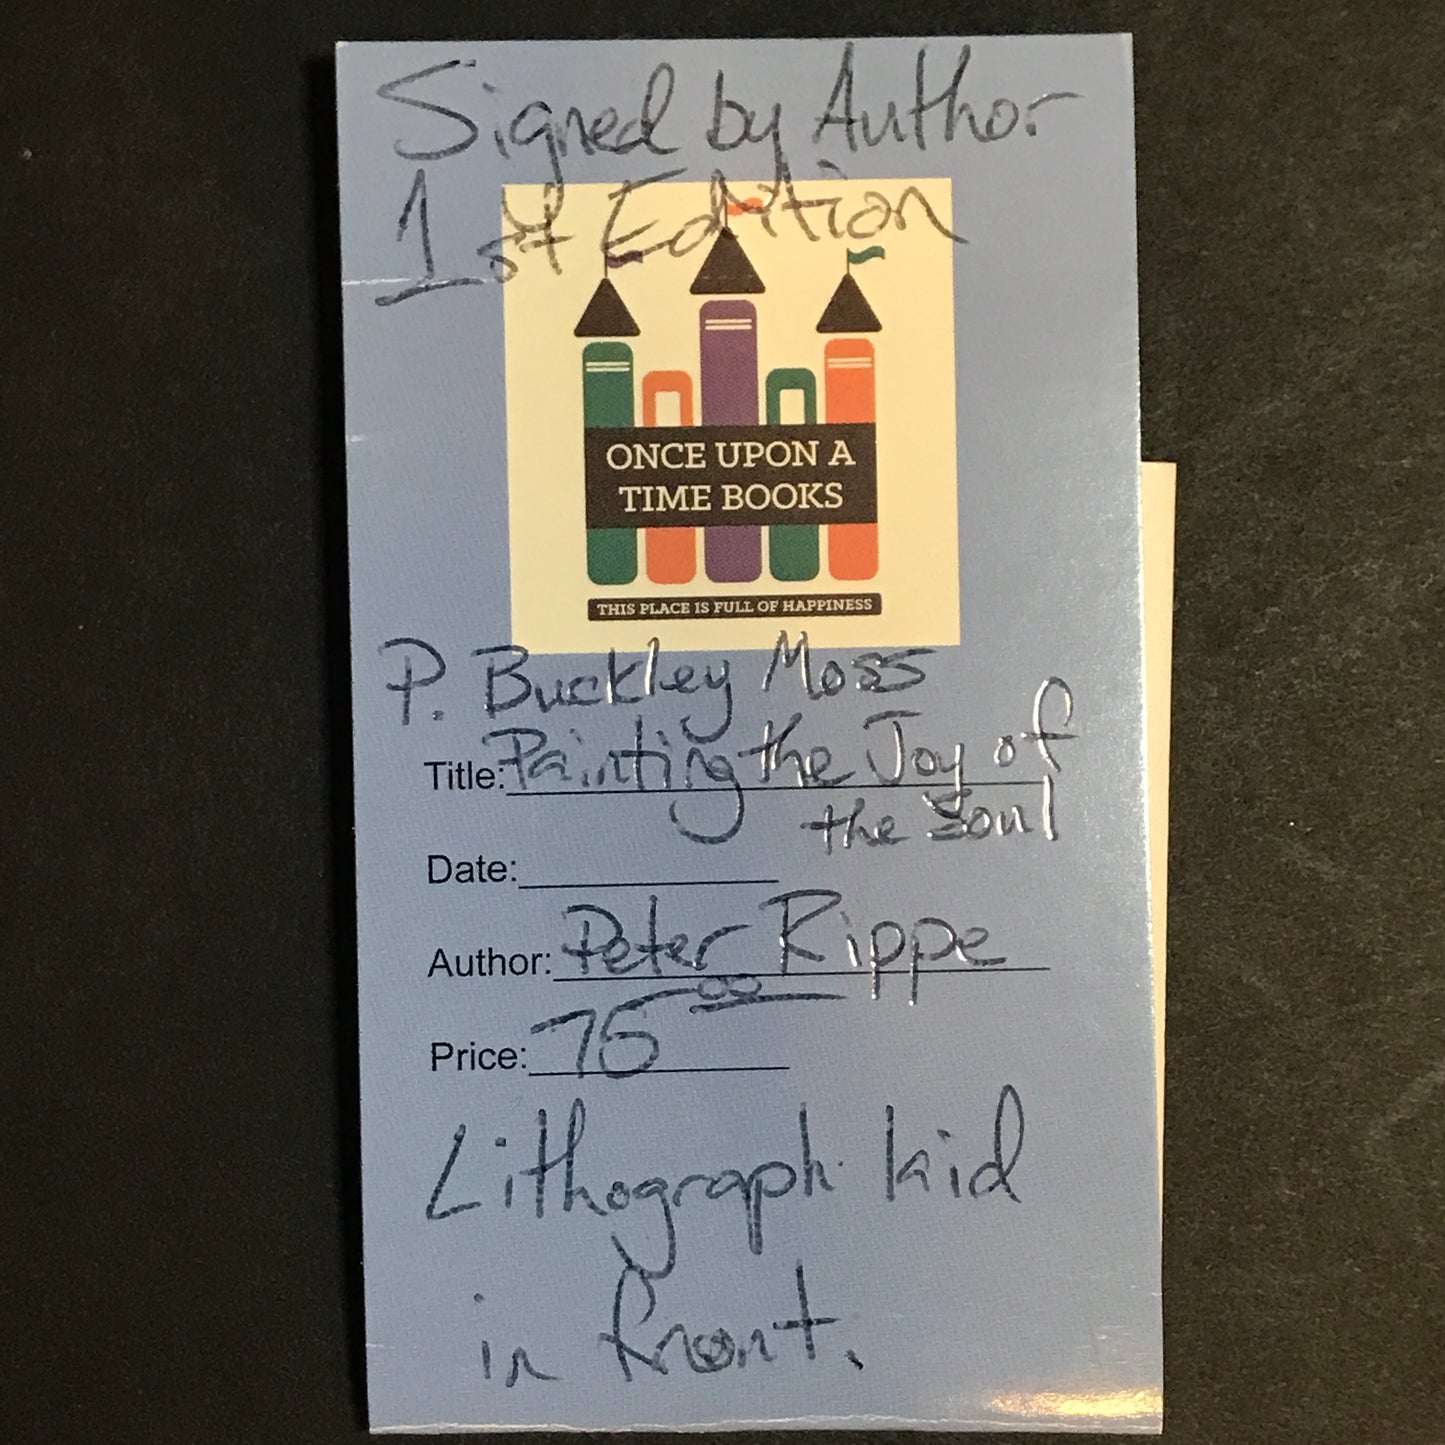 Signed by Author
1st Edition
ONCE UPON A
TIME BOOKS
THIS PLACE IS FULL OF HAPPINESS
P. Buckley Moss
Title: Painting the Joy of
the Soul
Date:
Author: Peter Rippe
Price: 75 00
Lithograph laid
in front.